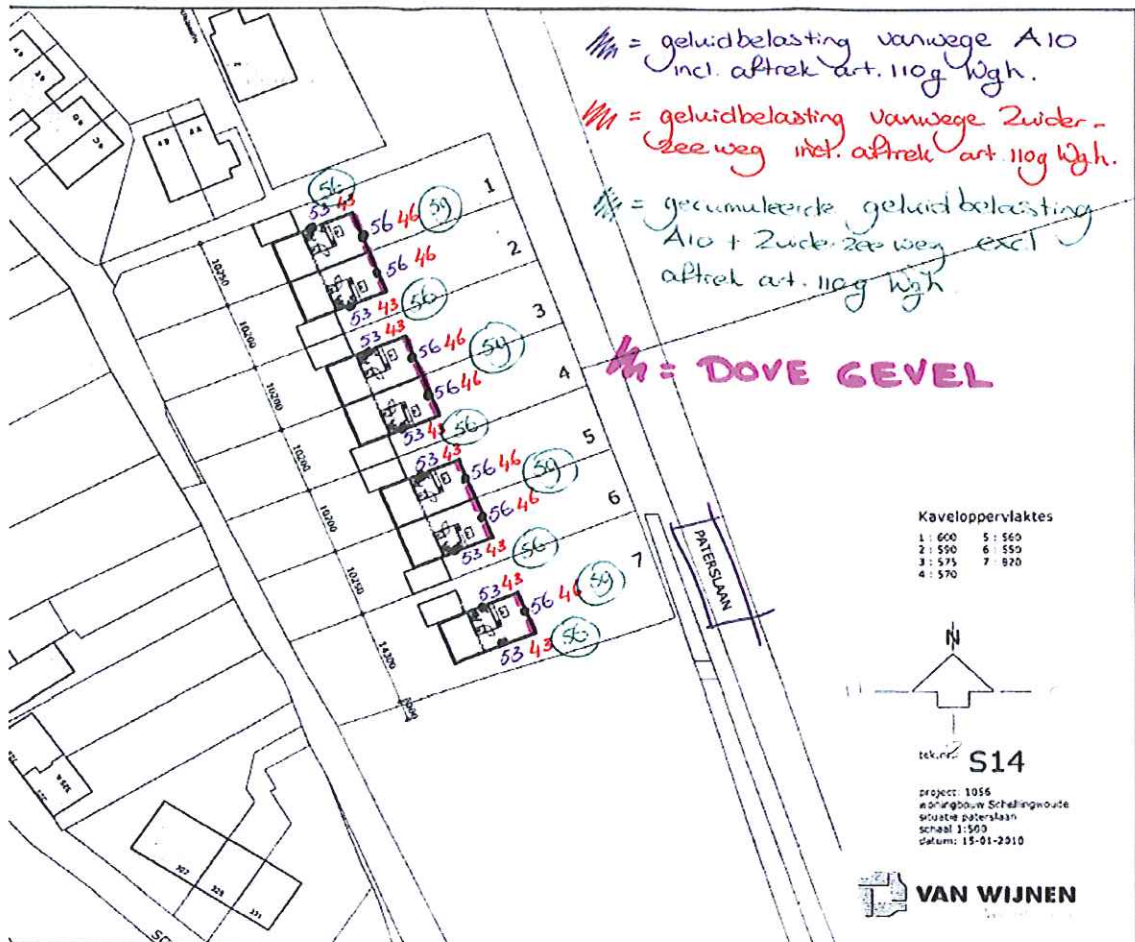 = geluidbelasting vanwege A10
incl. aftrek art. 110g Wgh.
= geluidbelasting vanwege Zuider-
zeeweg incl. aftrek art. 110g Wgh.
= gecumuleerde geluidbelasting
A10 + Zuiderzeeweg excl
aftrek art. 110g Wgh
= DOVE GEVEL
56
53 43
56 46 59
1
56 46
2
53 43 56
53 43
3
56 46 59
56 46
4
53 43 56
53 43
5
56 46 59
56 46
6
53 43 56
53 43
7
56 46 59
53 43 56
10250
10200
10200
10200
10200
10250
14300
PATERSLAAN
Kaveloppervlaktes
1 : 600 5 : 560
2 : 590 6 : 550
3 : 575 7 : 820
4 : 570
N
tek.nr.
S14
project: 1056
woningbouw Schellingwoude
situatie paterslaan
schaal 1:500
datum: 15-01-2010
VAN WIJNEN